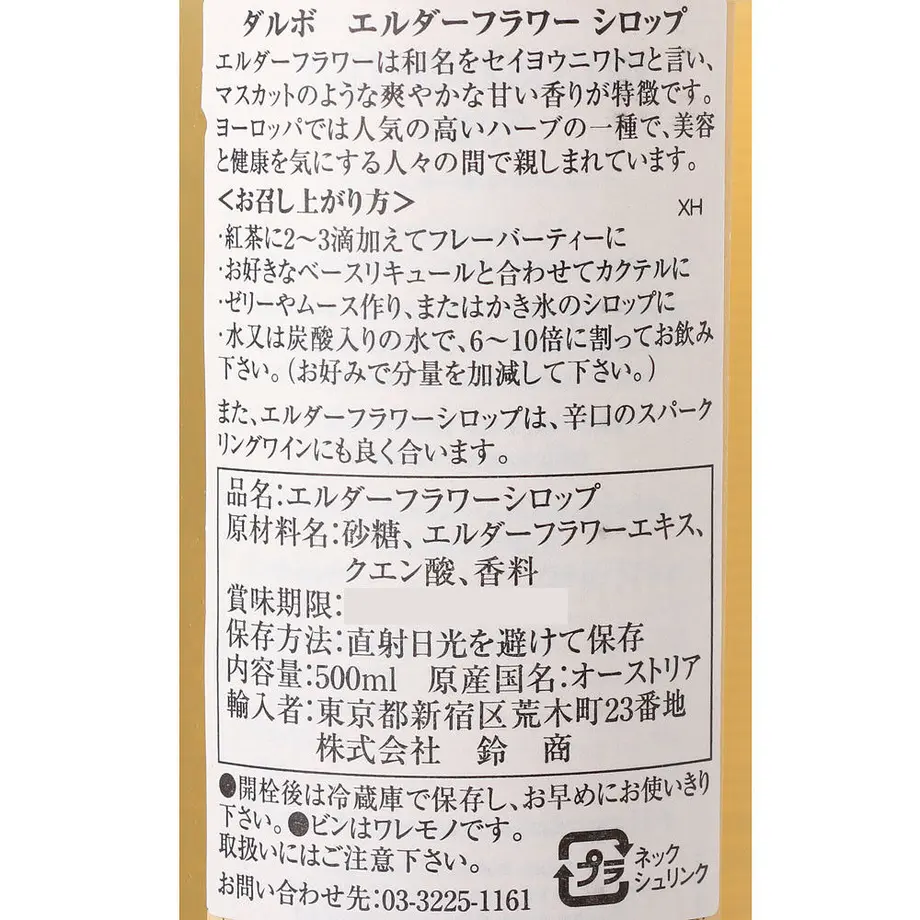 ダルボ　エルダーフラワー シロップ
エルダーフラワーは和名をセイヨウニワトコと言い、
マスカットのような爽やかな甘い香りが特徴です。
ヨーロッパでは人気の高いハーブの一種で、美容
と健康を気にする人々の間で親しまれています。
＜お召し上がり方＞
XH
・紅茶に2〜3滴加えてフレーバーティーに
・お好きなベースリキュールと合わせてカクテルに
・ゼリーやムース作り、またはかき氷のシロップに
・水又は炭酸入りの水で、6〜10倍に割ってお飲み
下さい。（お好みで分量を加減して下さい。）
また、エルダーフラワーシロップは、辛口のスパーク
リングワインにも良く合います。
品名：エルダーフラワーシロップ
原材料名：砂糖、エルダーフラワーエキス、
クエン酸、香料
賞味期限：
保存方法：直射日光を避けて保存
内容量：500ml　原産国名：オーストリア
輸入者：東京都新宿区荒木町23番地
株式会社　鈴　商
●開栓後は冷蔵庫で保存し、お早めにお使いきり
下さい。●ビンはワレモノです。
取扱いにはご注意下さい。
お問い合わせ先：03-3225-1161
プラ
ネック
シュリンク